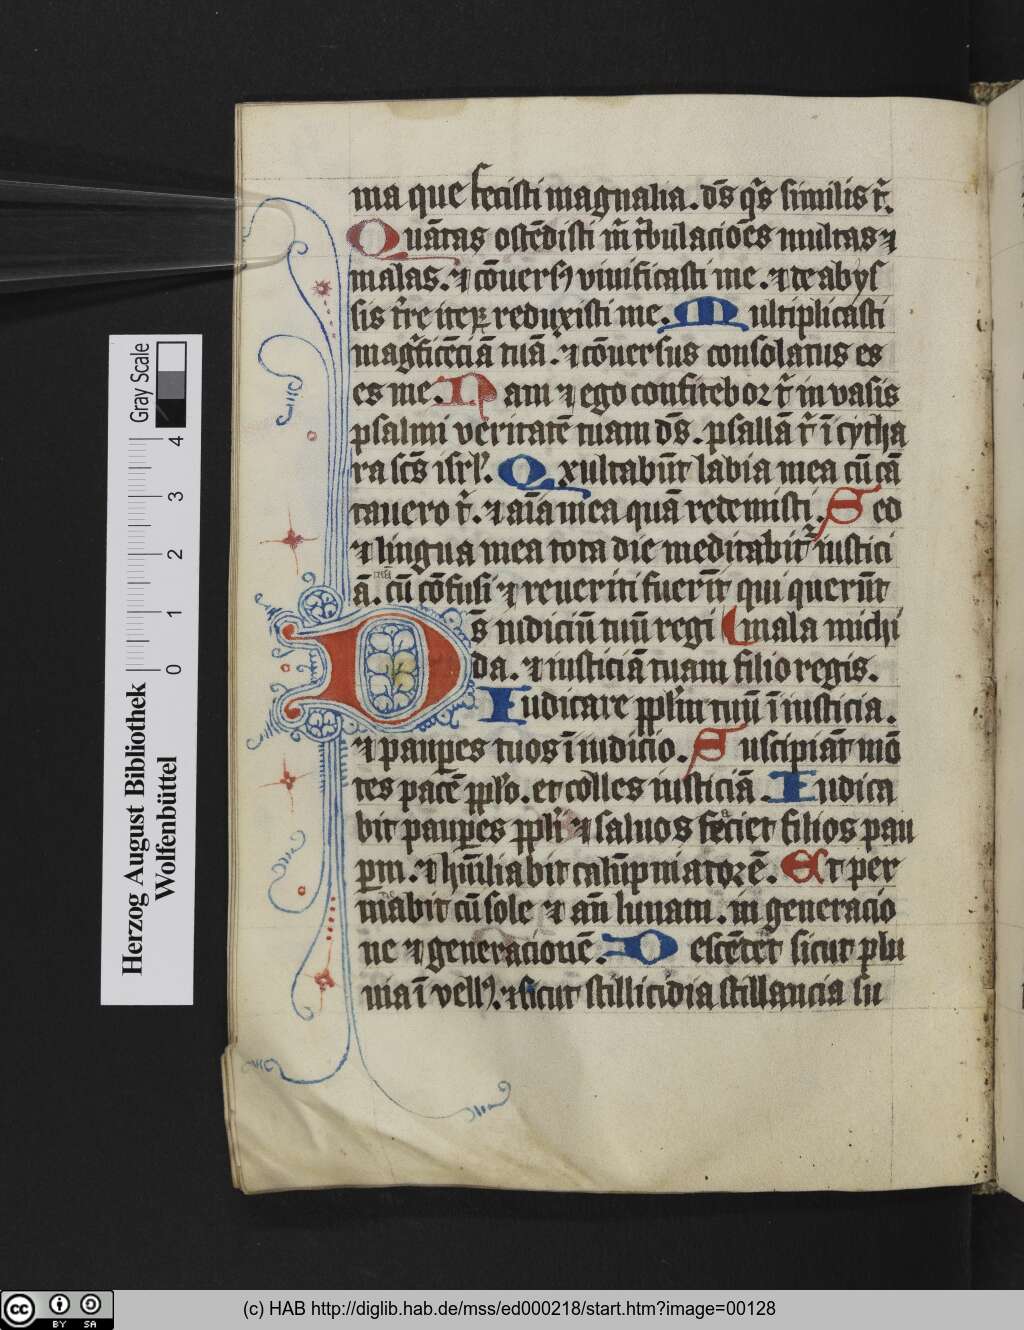 ma que fecisti magnalia. dn̄s q̄s similis t̄.
Quātas ostēdisti m̄ t̄bulaciōes multas ⁊
malas. ⁊ cōuersꝰ viuificasti me. ⁊ de abys
sis t̄re iteꝝ reduxisti me. Multiplicasti
maḡficēciā tuā. ⁊ cōuersus consolatus es
es me. Nam ⁊ ego confitebor t̄ in vasis
psalmi veritatē tuam ds̄. psallā t̄ ī cytha
ra sc̄s isrl̄. Exultabūt labia mea cū cā
tauero t̄. ⁊ aīa mea quā redemisti. Sed
⁊ lingua mea tota die meditabit̄ iustici
ā. tuā cū cōfusi ⁊ reueriti fuerīt qui querūt
Ds̄ iudiciū tuū regi mala michi
da. ⁊ iusticiā tuam filio regis.
Iudicare pplm̄ tuū ī iusticia.
⁊ paupes tuos ī iudicio. Suscipiāt mō
tes pacē pplo. et colles iusticiā. Iudica
bit paupes ppli ⁊ saluos faciet filios pau
pm. ⁊ hūiliabit calūpniatorē. Et per
mābit cū sole ⁊ an̄ lunam. in generacio
ne ⁊ generacionē. Descēdet sicut plu
uia ī vellꝰ. ⁊ sicut stillicidia stillancia su
Gray Scale
0 1 2 3 4
Herzog August Bibliothek
Wolfenbüttel
cc BY SA
(c) HAB http://diglib.hab.de/mss/ed000218/start.htm?image=00128